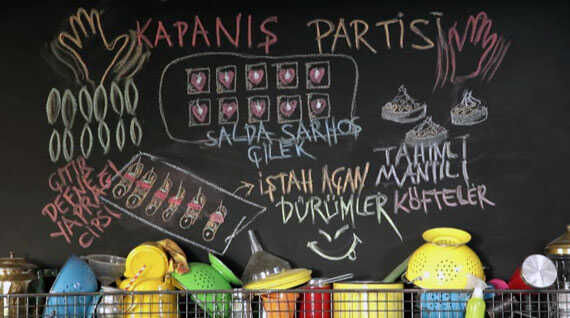 KAPANIŞ PARTİSİ
SALDA SARHOŞ
ÇİLEK
TAHİNLİ
MANTILI
KÖFTELER
İŞTAH AÇAN
DÜRÜMLER
ÇITIR
DEFNE
YAPRAĞI
CİPSİ